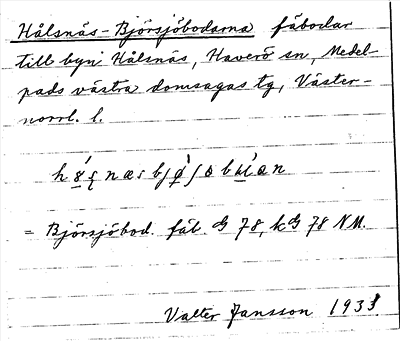 Hålsnäs-Björsjöbodarna fäbodar
till byn Hålsnäs, Haverö sn, Medel-
pads västra domsagas tg, Väster-
norrl. l.
= Björsjöbod. fäb. G 78, kG 78 NM.
Valter Jansson 1933